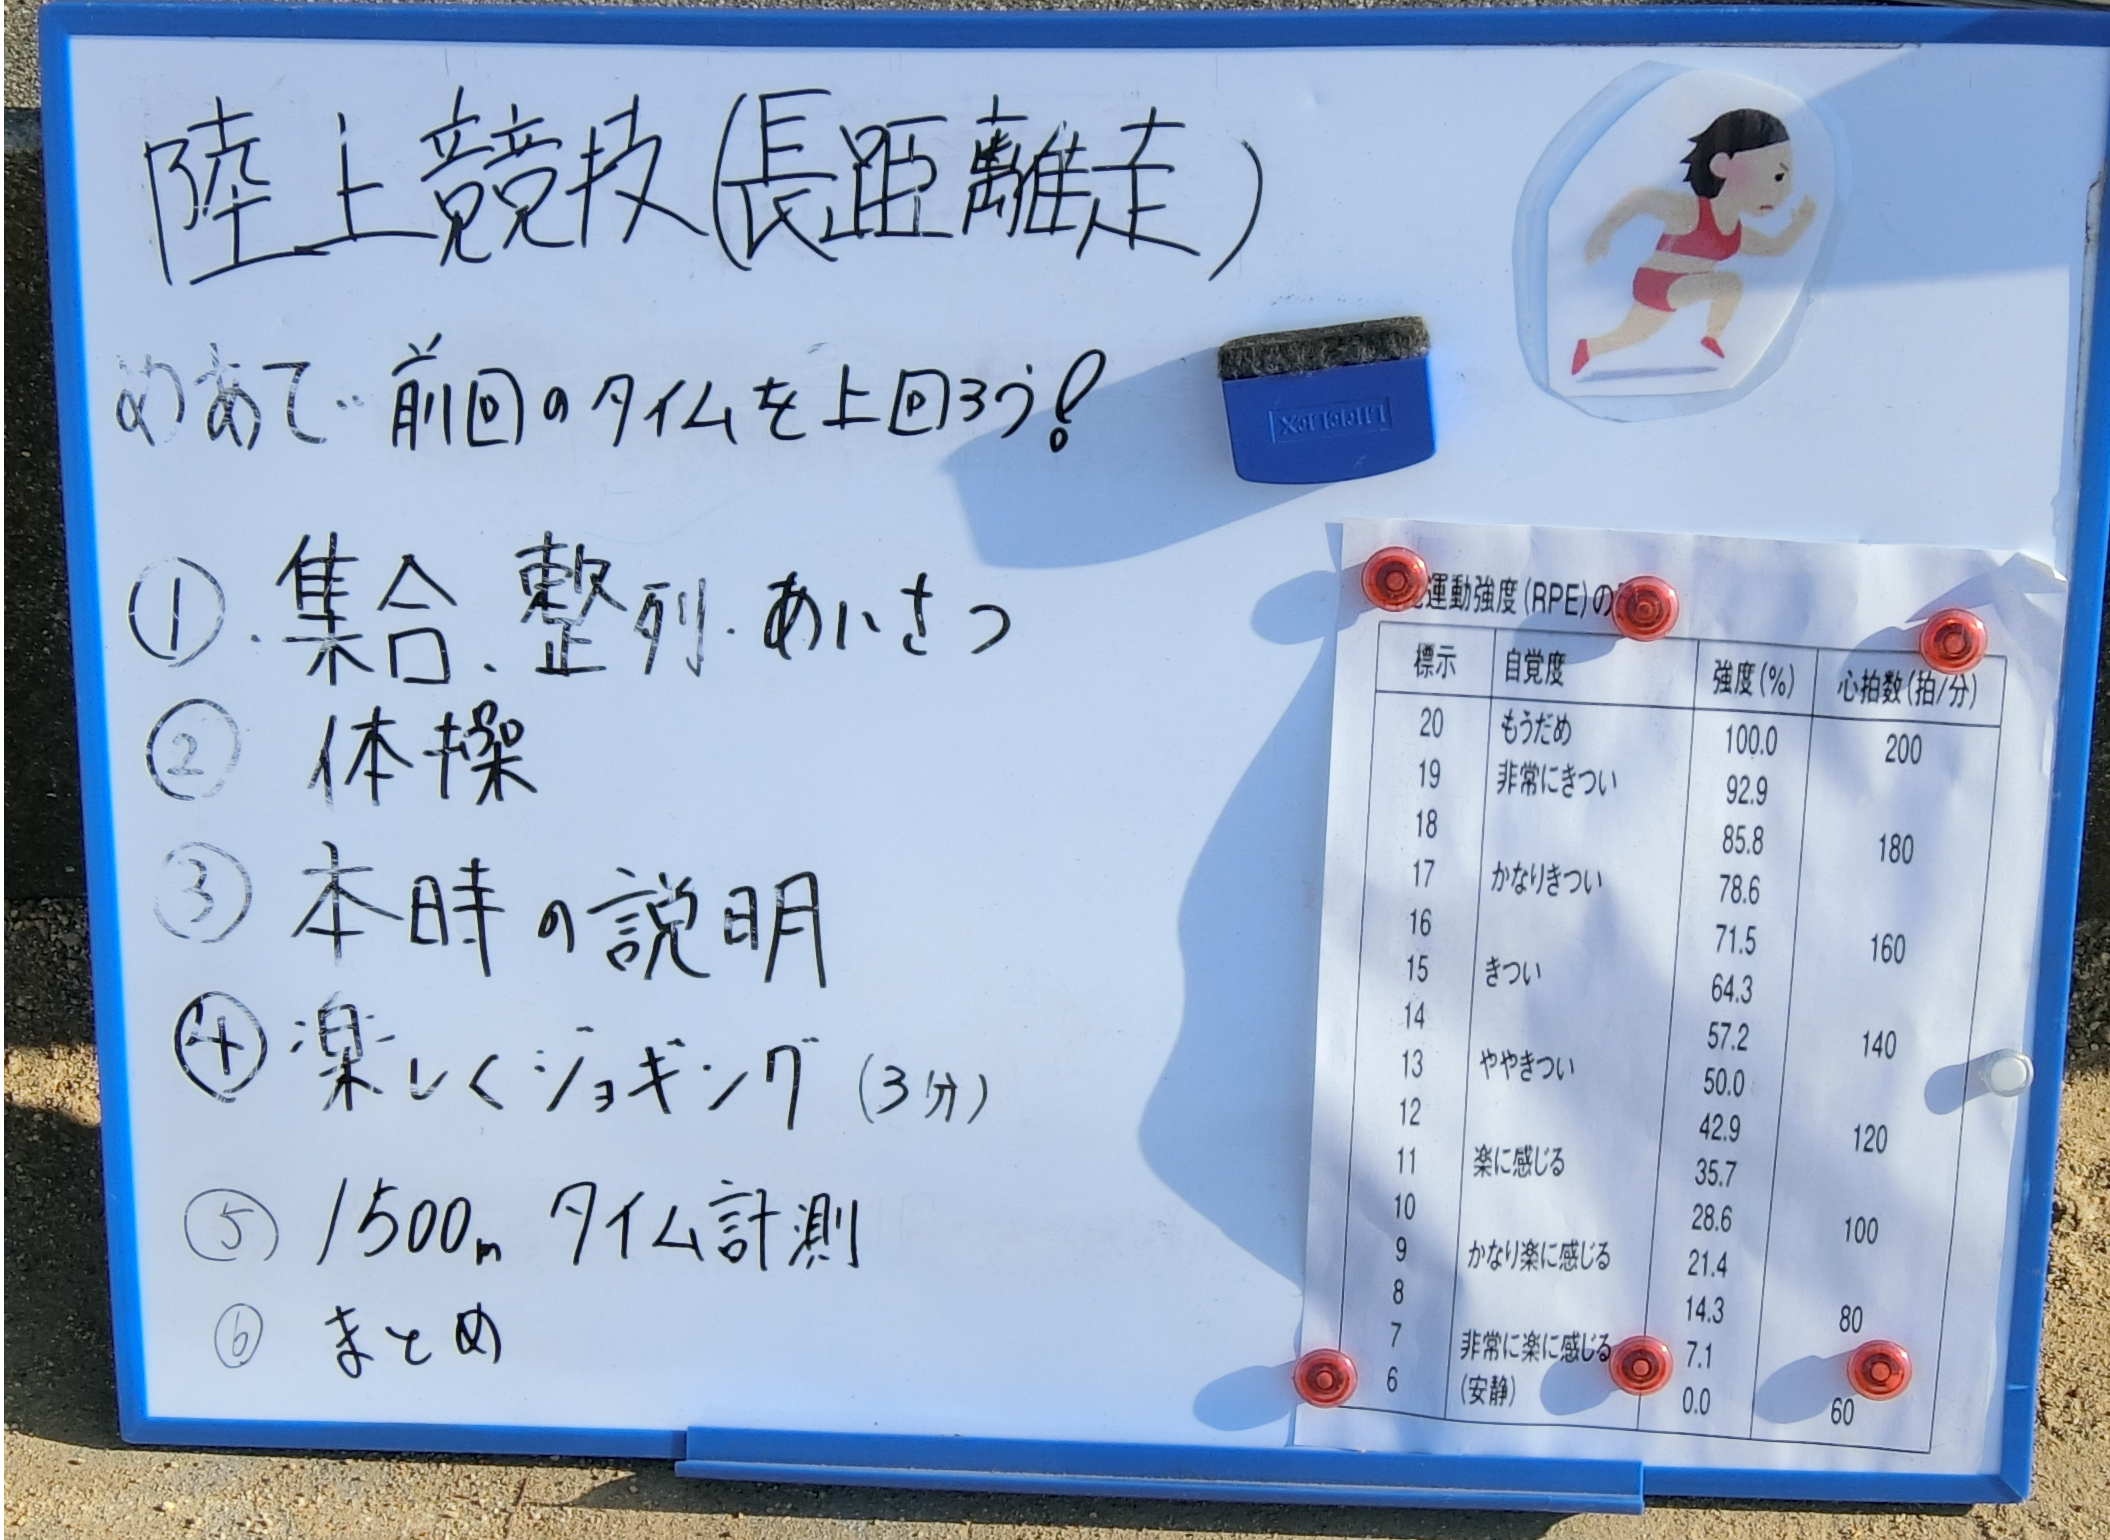 陸上競技(長距離走)
めあて‥前回のタイムを上回ろう!
①.集合、整列.あいさつ
② 体操
③ 本時の説明
④ 楽しくジョギング(3分)
⑤ 1500m タイム計測
⑥ まとめ
LIFELEX
運動強度(RPE)の
標示 自覚度 強度(%) 心拍数(拍/分)
20 もうだめ 100.0 200
19 非常にきつい 92.9
18 85.8 180
17 かなりきつい 78.6
16 71.5 160
15 きつい 64.3
14 57.2 140
13 ややきつい 50.0
12 42.9 120
11 楽に感じる 35.7
10 28.6 100
9 かなり楽に感じる 21.4
8 14.3 80
7 非常に楽に感じる 7.1
6 (安静) 0.0 60